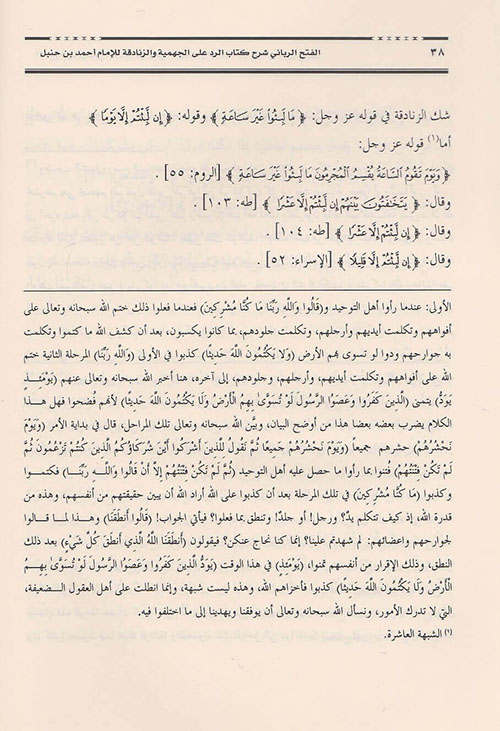 ٣٨ الفتح الرباني شرح كتاب الرد على الجهمية والزنادقة للإمام أحمد بن حنبل
شك الزنادقة في قوله عز وجل: ﴿ مَا لَبِثُوا غَيْرَ سَاعَةٍ ﴾ وقوله: ﴿ إِن لَّبِثْتُمْ إِلَّا يَوْمًا ﴾
أما(١) قوله عز وجل:
﴿ وَيَوْمَ تَقُومُ السَّاعَةُ يُقْسِمُ الْمُجْرِمُونَ مَا لَبِثُوا غَيْرَ سَاعَةٍ ﴾ [الروم: ٥٥] .
وقال: ﴿ يَتَخَافَتُونَ بَيْنَهُمْ إِن لَّبِثْتُمْ إِلَّا عَشْرًا ﴾ [طه: ١٠٣] .
وقال: ﴿ إِن لَّبِثْتُمْ إِلَّا عَشْرًا ﴾ [طه: ١٠٤] .
وقال: ﴿ إِن لَّبِثْتُمْ إِلَّا قَلِيلًا ﴾ [الإسراء: ٥٢] .
الأولى: عندما رأوا أهل التوحيد (قَالُوا وَاللَّهِ رَبِّنَا مَا كُنَّا مُشْرِكِينَ) فعندما فعلوا ذلك ختم الله سبحانه وتعالى على
أفواههم وتكلمت أيديهم وأرجلهم، وتكلمت جلودهم، بما كانوا يكسبون، بعد أن كشف الله ما كتموا وتكلمت
به جوارحهم ودوا لو تسوى بهم الأرض (وَلَا يَكْتُمُونَ اللَّهَ حَدِيثًا) كذبوا في الأولى (وَاللَّهِ رَبِّنَا) المرحلة الثانية ختم
الله على أفواههم وتكلمت أيديهم، وأرجلهم، وجلودهم، إلى آخره، هنا أخبر الله سبحانه وتعالى عنهم (يَوْمَئِذٍ
يَوَدُّ) يتمنى (الَّذِينَ كَفَرُوا وَعَصَوُا الرَّسُولَ لَوْ تُسَوَّىٰ بِهِمُ الْأَرْضُ وَلَا يَكْتُمُونَ اللَّهَ حَدِيثًا) لأنهم فُضحوا فهل هذا
الكلام يضرب بعضه بعضا هذا من أوضح البيان، وبيَّن الله سبحانه وتعالى تلك المراحل، قال في بداية الأمر (وَيَوْمَ
نَحْشُرُهُمْ) حشرهم جميعاً (وَيَوْمَ نَحْشُرُهُمْ جَمِيعًا ثُمَّ نَقُولُ لِلَّذِينَ أَشْرَكُوا أَيْنَ شُرَكَاؤُكُمُ الَّذِينَ كُنْتُمْ تَزْعُمُونَ ثُمَّ
لَمْ تَكُنْ فِتْنَتُهُمْ) فُتنوا بما رأوا ما حصل عليه أهل التوحيد (ثُمَّ لَمْ تَكُنْ فِتْنَتُهُمْ إِلَّا أَنْ قَالُوا وَاللَّهِ رَبِّنَا) فكتموا
وكذبوا (مَا كُنَّا مُشْرِكِينَ) في تلك المرحلة بعد أن كذبوا على الله أراد الله أن يبين حقيقتهم من أنفسهم، وهذه من
قدرة الله، إذ كيف تتكلم يدٌ؟ ورجل! أو جلدٌ! وتنطق بما فعلوا؟ فيأتي الجواب! (قَالُوا أَنطَقَنَا) وهذا لما قالوا
لجوارحهم واعضائهم: لم شهدتم علينا؟ إنما كنا نحاج عنكن؟ فيقولون (أَنطَقَنَا اللَّهُ الَّذِي أَنطَقَ كُلَّ شَيْءٍ) بعد ذلك
النطق، وذلك الإقرار من أنفسهم تمنوا، (يَوْمَئِذٍ) في هذا الوقت (يَوَدُّ الَّذِينَ كَفَرُوا وَعَصَوُا الرَّسُولَ لَوْ تُسَوَّىٰ بِهِمُ
الْأَرْضُ وَلَا يَكْتُمُونَ اللَّهَ حَدِيثًا) كذبوا فأخزاهم الله، وهذه ليست شبهة، وإنما انطلت على أهل العقول الضعيفة،
التي لا تدرك الأمور، ونسأل الله سبحانه وتعالى أن يوفقنا ويهدينا إلى ما اختلفوا فيه.
(١) الشبهة العاشرة.